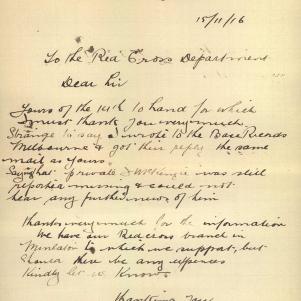 15/11/16
To the Red Cross Department
Dear Sir
Yours of the 14th to hand for which
I must thank you very much
Strange to say I wrote to the Base Records
Melbourne & got their reply the same
mail as yours
Saying that private J McKenzie was still
reported missing & could not
hear any further news of him
thanks very much for the information
We have our Red cross branch in
to which we support, but
Should there be any expences
Kindly let us know
thanking you